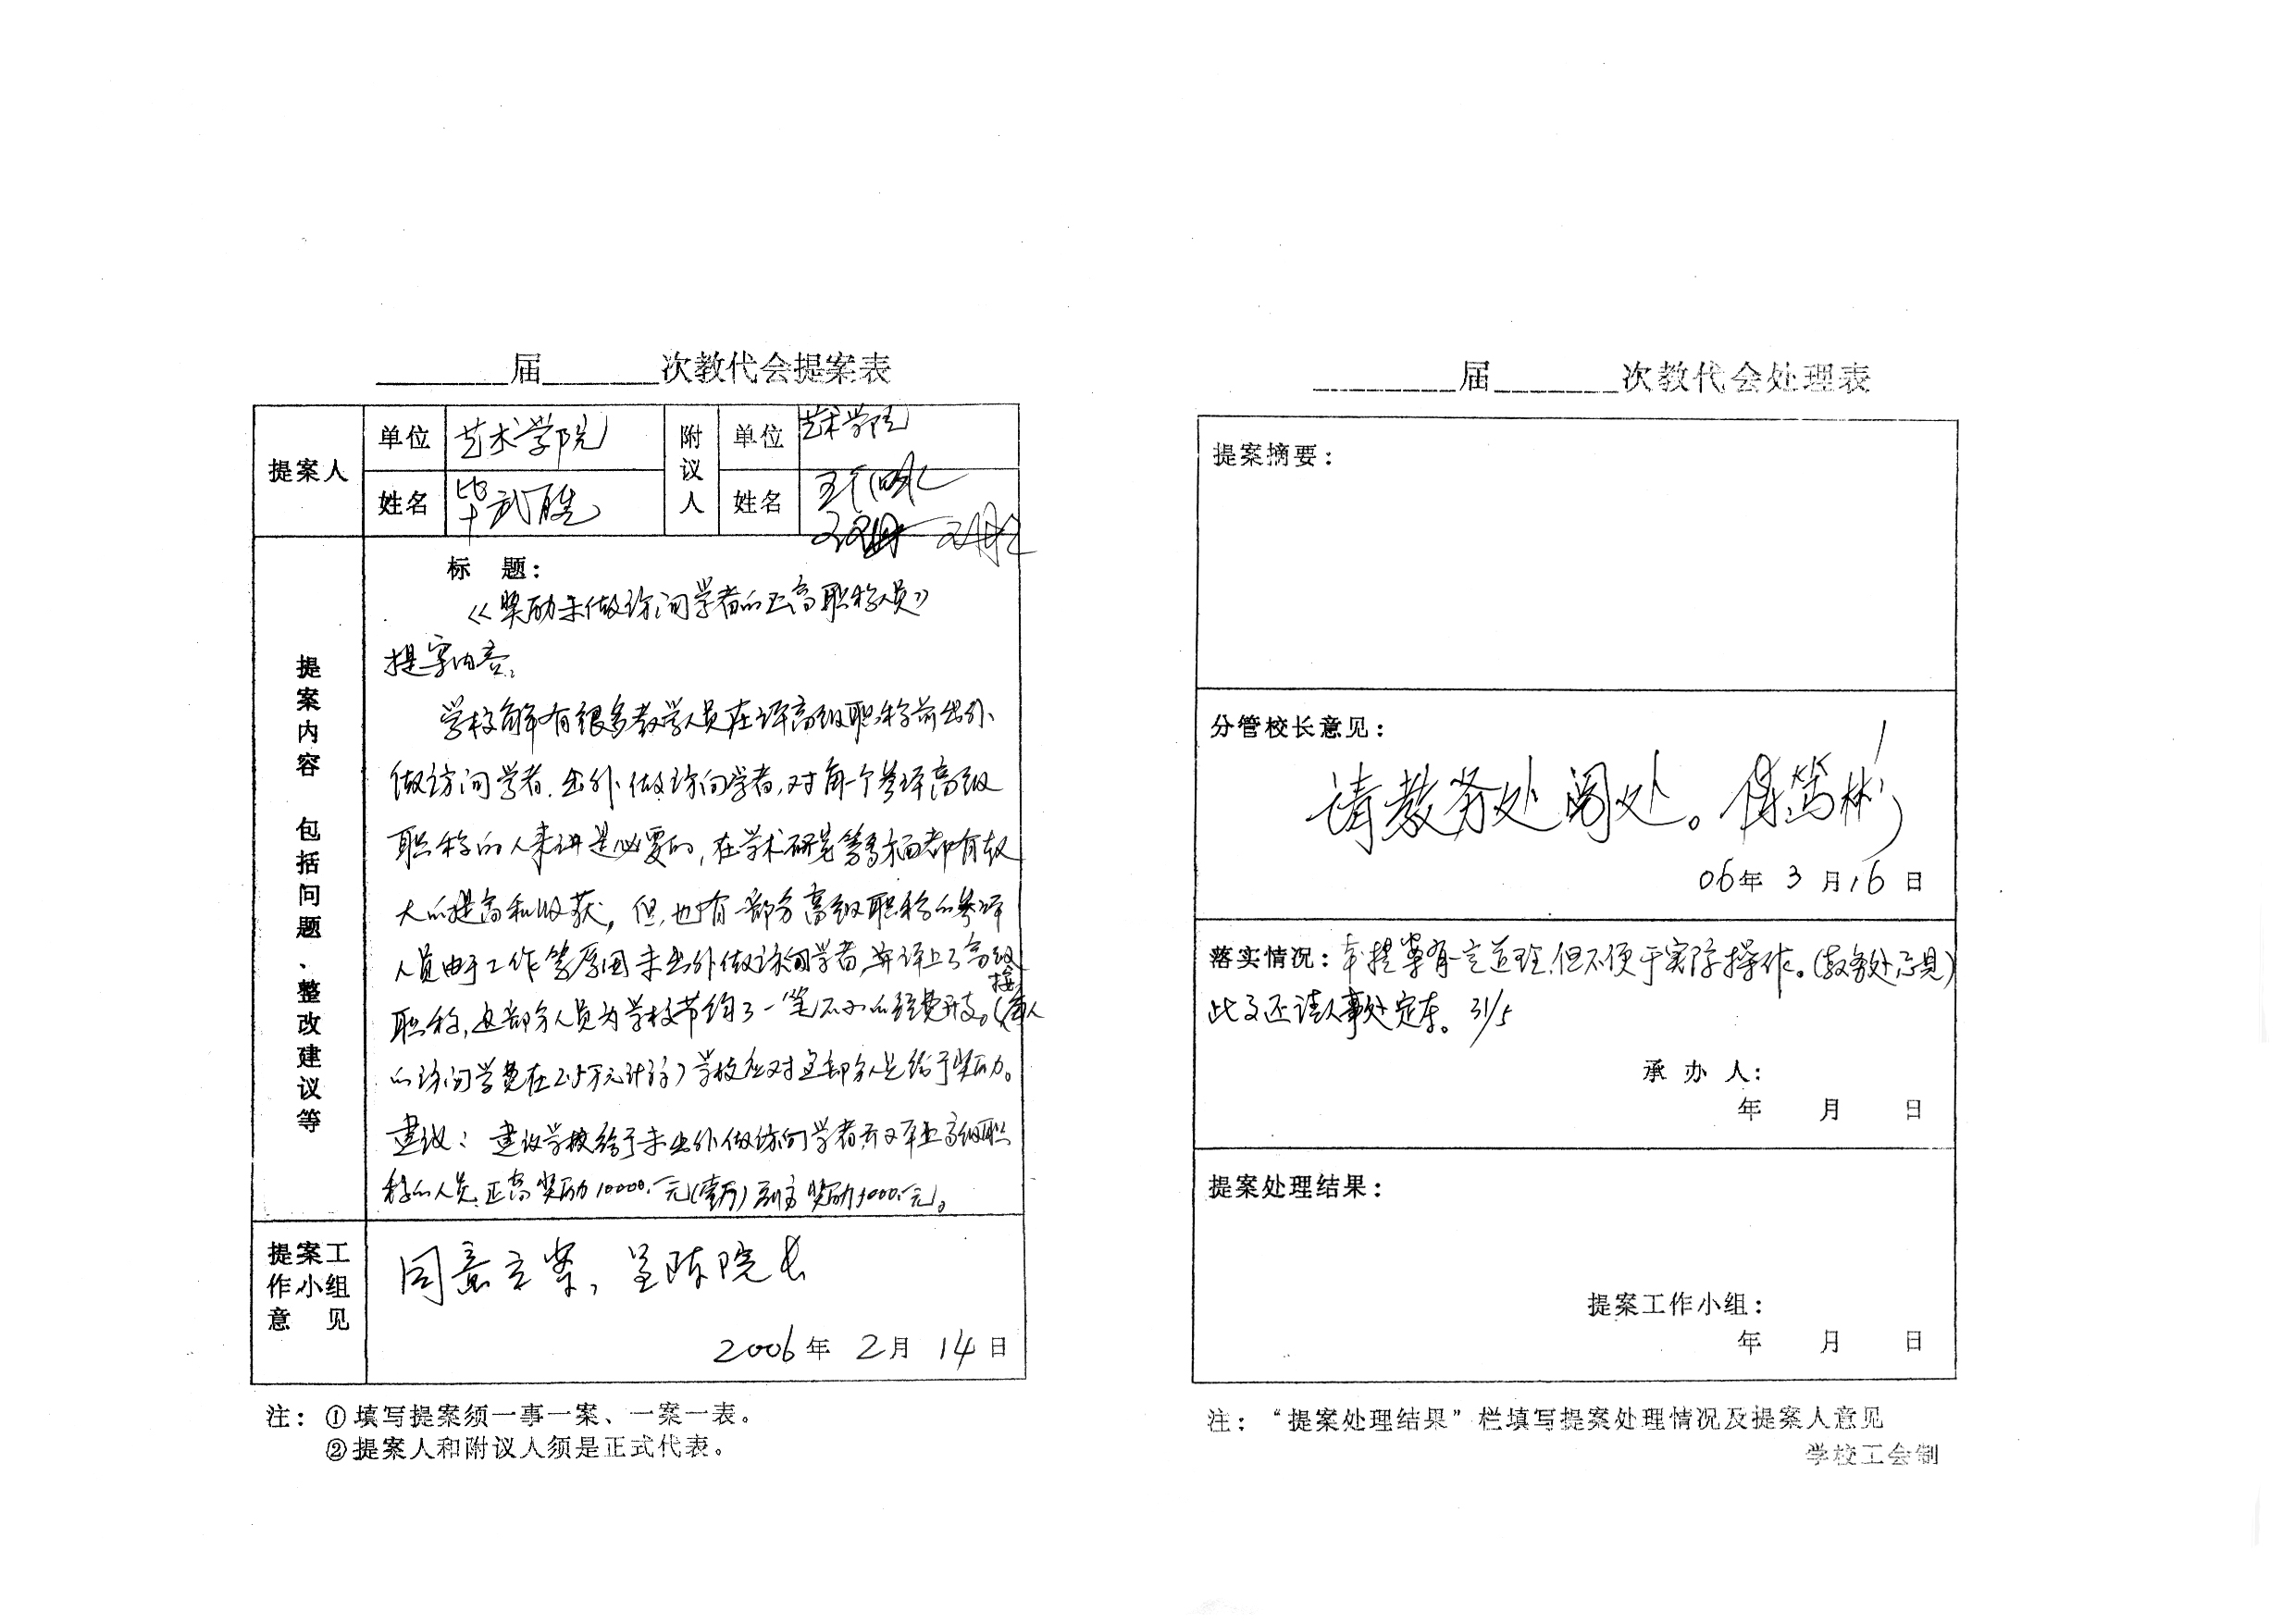 届 次教代会提案表
提案人 单位 艺术学院 附议人 单位 艺术学院
姓名 毕武 姓名
标 题：
《奖励未做访问学者的正高职称人员》
提案内容 包括问题、整改建议等
提案内容：
学校每年有很多教学人员在评高级职称前出外
做访问学者．出外做访问学者，对每一个参评高级
职称的人来讲是必要的，在学术研究等方面都有较
大的提高和收获，但，也有一部分高级职称的参评
人员由于工作等原因未出外做访问学者，并评上了高级
职称，这部分人员为学校节约了一笔不小的经费开支。（按每人
的访问学费在2.5万元计算）学校应对这部分人员给予奖励。
建议：建议学校给予未出外做访问学者而又评上高级职
称的人员，正高奖励10000.元（壹万）副高奖励5000.元。
提案工作小组意见
同意立案，呈陈院长
2006年 2月 14日
注：①填写提案须一事一案、一案一表。
②提案人和附议人须是正式代表。
届 次教代会处理表
提案摘要：
分管校长意见：
请教务处阅处。傅笃彬
06年 3月16日
落实情况：本提案有一定道理，但不便于实际操作。（教务处意见）
此文还请人事处定夺。31/5
承 办 人：
年 月 日
提案处理结果：
提案工作小组：
年 月 日
注：“提案处理结果”栏填写提案处理情况及提案人意见
学校工会制